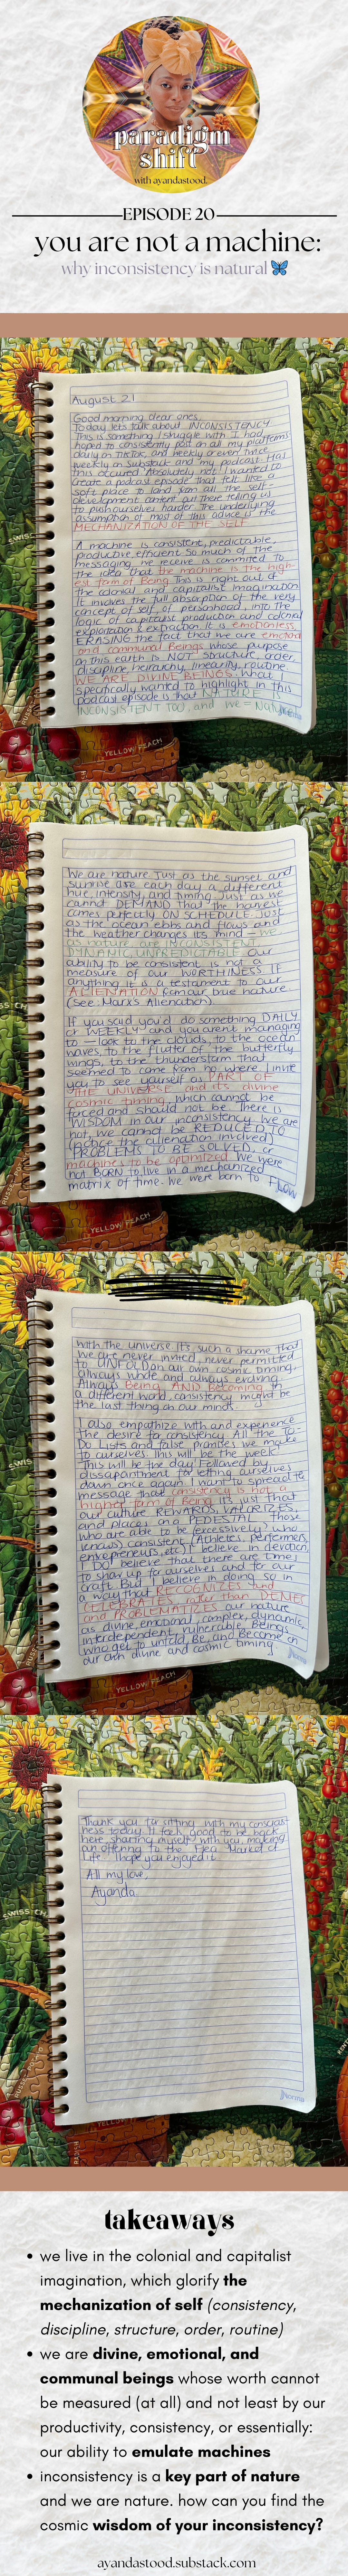 paradigm
shift
with ayandastood.
EPISODE 20
you are not a machine:
why inconsistency is natural
August 21
Good morning dear ones,
Today lets talk about INCONSISTENCY
This is something I struggle with. I had
hoped to consistently post on all my platforms
daily on TikTok, and weekly or even twice
weekly on Substack and my podcast. Has
this occured? Absolutely not! I wanted to
create a podcast episode that felt like a
soft place to land from all the self-
development content out there telling us
to push ourselves harder. The underlying
assumption of most of this advice is the
MECHANIZATION OF THE SELF.
A machine is consistent, predictable,
productive, efficient. So much of the
messaging we receive is commited to
the idea that the machine is the high-
est form of Being. This is right out of
the colonial and capitalist imagination.
It involves the full absorption of the very
concept of self, of personhood, into the
logic of capitalist production and colonial
exploitation & extraction. It is emotionless,
ERASING the fact that we are emotional
and communal Beings whose purpose
on this earth is NOT structure, order,
discipline, heirarchy, linearity, routine.
WE ARE DIVINE BEINGS. What I
specifically wanted to highlight in this
podcast episode is that NATURE IS
INCONSISTENT TOO, and we = Nature.
Norma
SWISS
YELLOW PEACH
We are nature. Just as the sunset and
sunrise are each day a different
hue, intensity, and timing. Just as we
cannot DEMAND that the harvest
comes perfectly ON SCHEDULE. Just
as the ocean ebbs and flows and
the weather changes its mind - we
as nature are INCONSISTENT,
DYNAMIC, UNPREDICTABLE. Our
ability to be consistent is not a
measure of our WORTHINESS. If
anything it is a testament to our
ALIENATION from our true nature
(See: Marx's Alienation).
If you said you'd do something DAILY
or WEEKLY and you arent managing
to — look to the clouds, to the ocean
waves, to the flutter of the butterfly
wings, to the thunderstorm that
seemed to come from no where. I invite
you to see yourself as PART OF
THE UNIVERSE and its divine
cosmic timing, which cannot be
forced and should not be. There is
WISDOM in our inconsistency. We are
not, we cannot be REDUCED TO
(notice the alienation involved)
PROBLEMS TO BE SOLVED, or
machines to be optimized. We were
not BORN to live in a mechanized
matrix of time. We were born to FLOW
YELLOW PEACH
With the universe. It's such a shame that
we are never invited, never permitted
to UNFOLD on our own cosmic timing,
always whole and always evolving.
Always Being AND Becoming. In
a different world, consistency might be
the last thing on our minds.
I also empathize with and experience
the desire for consistency. All the To-
Do Lists and false promises we make
to ourselves. This will be the week!
This will be the day! Followed by
dissapointment for letting ourselves
down once again. I want to spread the
message that consistency is not a
higher form of Being, it's just that
our culture REWARDS, VALORIZES,
and places on a PEDESTAL those
who are able to be (excessively) (who
knows) consistent (Athletes, performers,
entrepreneurs, etc). I believe in devotion,
I DO believe that there are times
to show up for ourselves and for our
craft. But I believe in doing so in
a way that RECOGNIZES and
CELEBRATES rather than DENIES
and PROBLEMATIZES our nature
as divine, emotional, complex, dynamic,
interdependent, vulnerable Beings
who get to unfold, Be, and Become on
our own divine and cosmic timing.
SWIS
YELLOW PEACH
Thank you for sitting with my conscious-
ness today. It feels good to be back
here, sharing myself with you, making
an offering to the Idea Market of
Life. I hope you enjoyed it.
All my love,
Ayanda
SWISS CH
Norma
takeaways
• we live in the colonial and capitalist
imagination, which glorify the
mechanization of self (consistency,
discipline, structure, order, routine)
• we are divine, emotional, and
communal beings whose worth cannot
be measured (at all) and not least by our
productivity, consistency, or essentially:
our ability to emulate machines
• inconsistency is a key part of nature
and we are nature. how can you find the
cosmic wisdom of your inconsistency?
ayandastood.substack.com